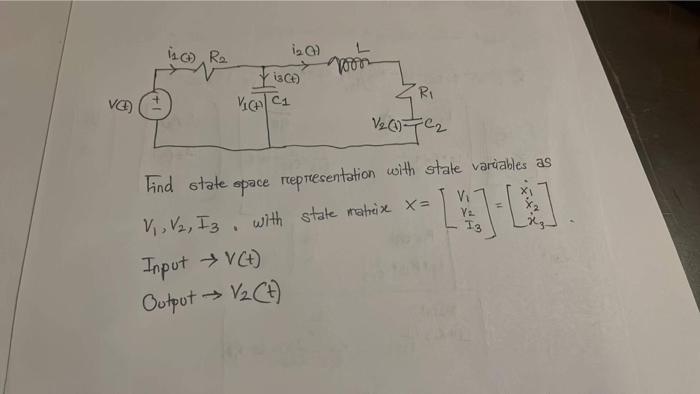 i1(t) R2 i2(t) L
i3(t)
V(t) + − V1(t) C1 R1
V2(t) C2
Find state space representation with state variables as
V1, V2, I3 . with state matrix X = [V1 V2 I3] = [ẋ1 ẋ2 ẋ3] .
Input → V(t)
Output → V2(t)